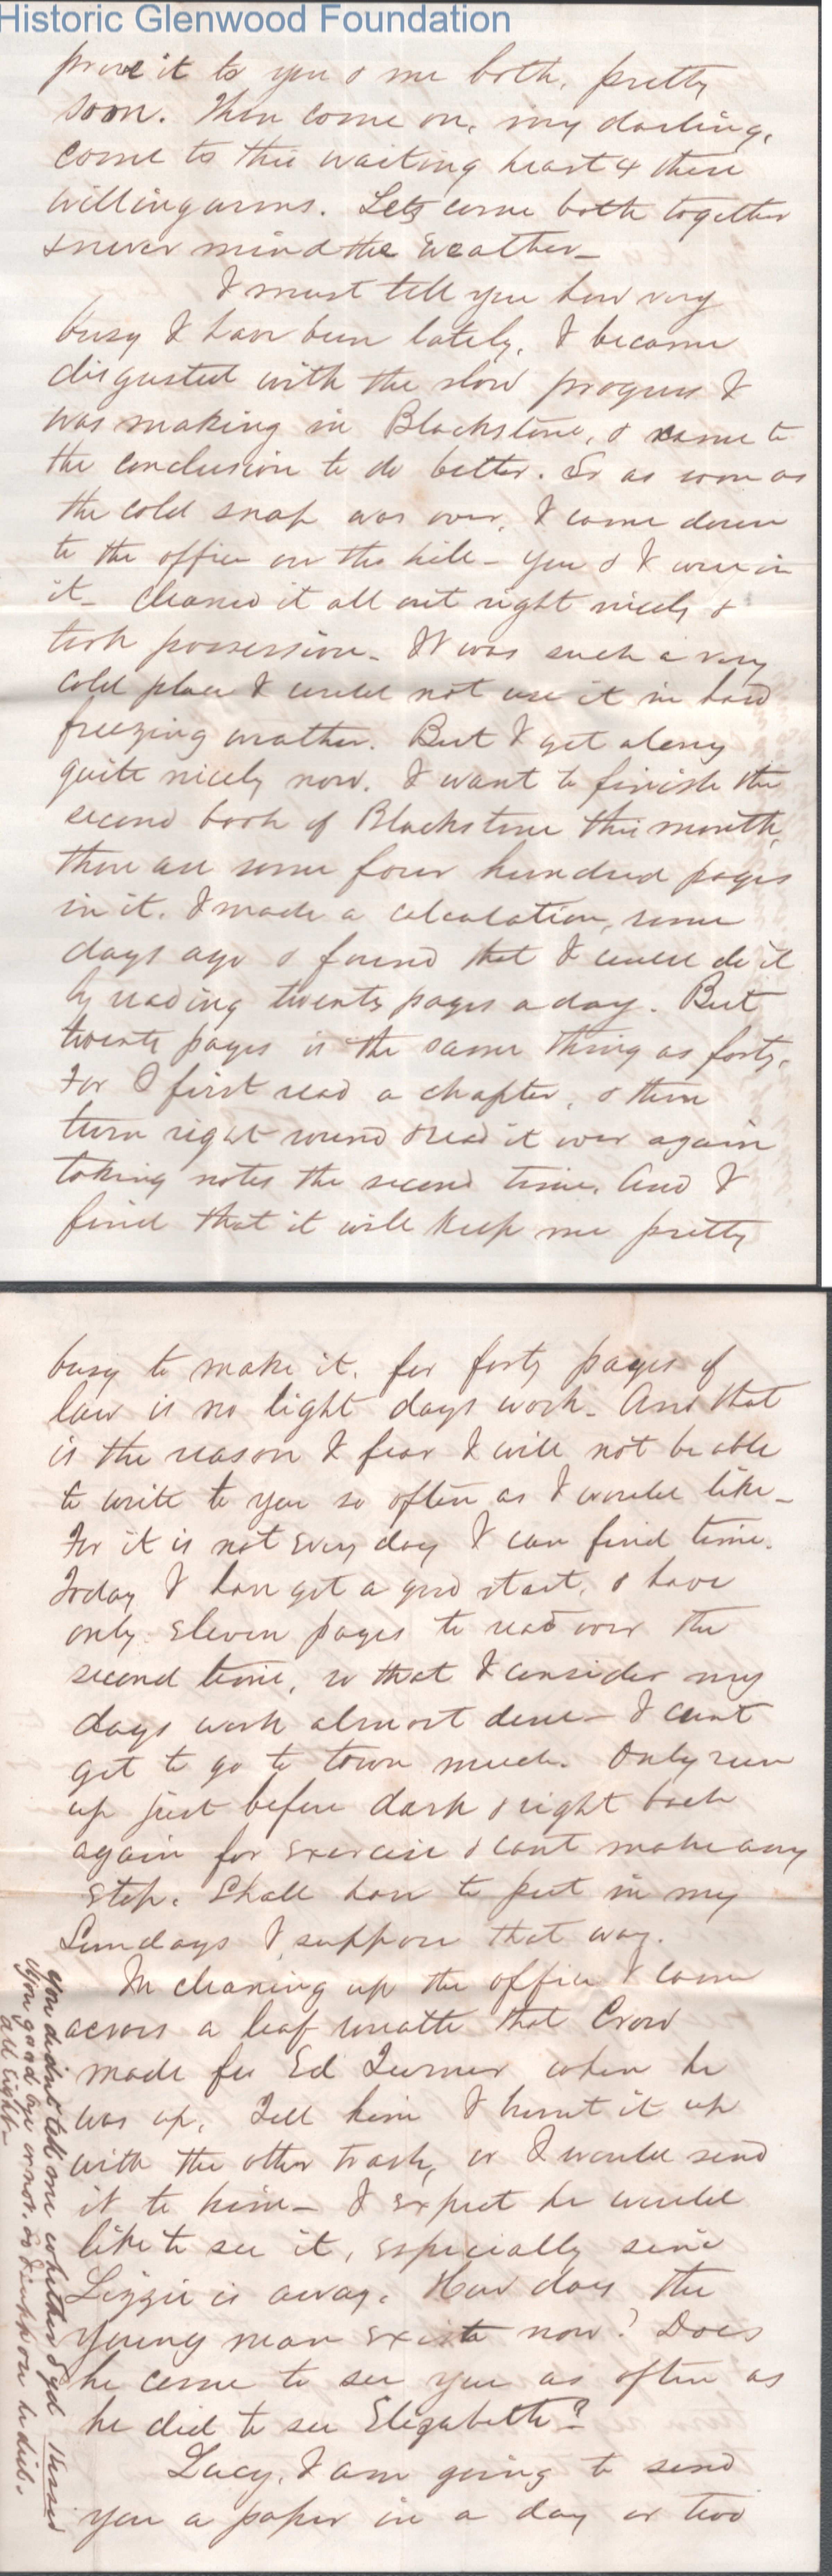 Historic Glenwood Foundation
prove it to you & me both, pretty
soon. Then come on, my darling,
come to this waiting heart & these
willing arms. Lets come both together
& never mind the weather—
I must tell you how very
busy I have been lately. I became
disgusted with the slow progress I
was making in Blackstone, & came to
the conclusion to do better. So as soon as
the cold snap was over, I came down
to the office on the hill — you & I were in
it — cleaned it all out right nicely &
took possession — It was such a very
cold place I could not use it in hard
freezing weather. But I get along
quite nicely now. I want to finish the
second book of Blackstone this month,
there are some four hundred pages
in it. I made a calculation, some
days ago & found that I could do it
by reading twenty pages a day. But
twenty pages is the same thing as forty,
for I first read a chapter, & then
turn right round & read it over again
taking notes the second time. And I
find that it will keep me pretty
busy to make it, for forty pages of
law is no light days work — And that
is the reason I fear I will not be able
to write to you so often as I would like —
For it is not every day I can find time.
Today I have got a good start, & have
only eleven pages to read over the
second time, so that I consider my
days work almost done — I cant
get to go to town much. Only run
up just before dark & right back
again for exercise & cant make any
stop. Shall have to put in my
Sundays I suppose that way.
In cleaning up the office I came
across a leaf wreath that Crow
made for Ed Turner when he
was up. Tell him I burnt it up
with the other trash, or I would send
it to him — I expect he would
like to see it, especially since
Lizzie is away. How does the
young man exist now? Does
he come to see you as often as
he did to see Elizabeth?
Lucy, I am going to send
you a paper in a day or two
You didnt tell me whether Syd kissed
you good bye or not. I suppose he did.
All right—